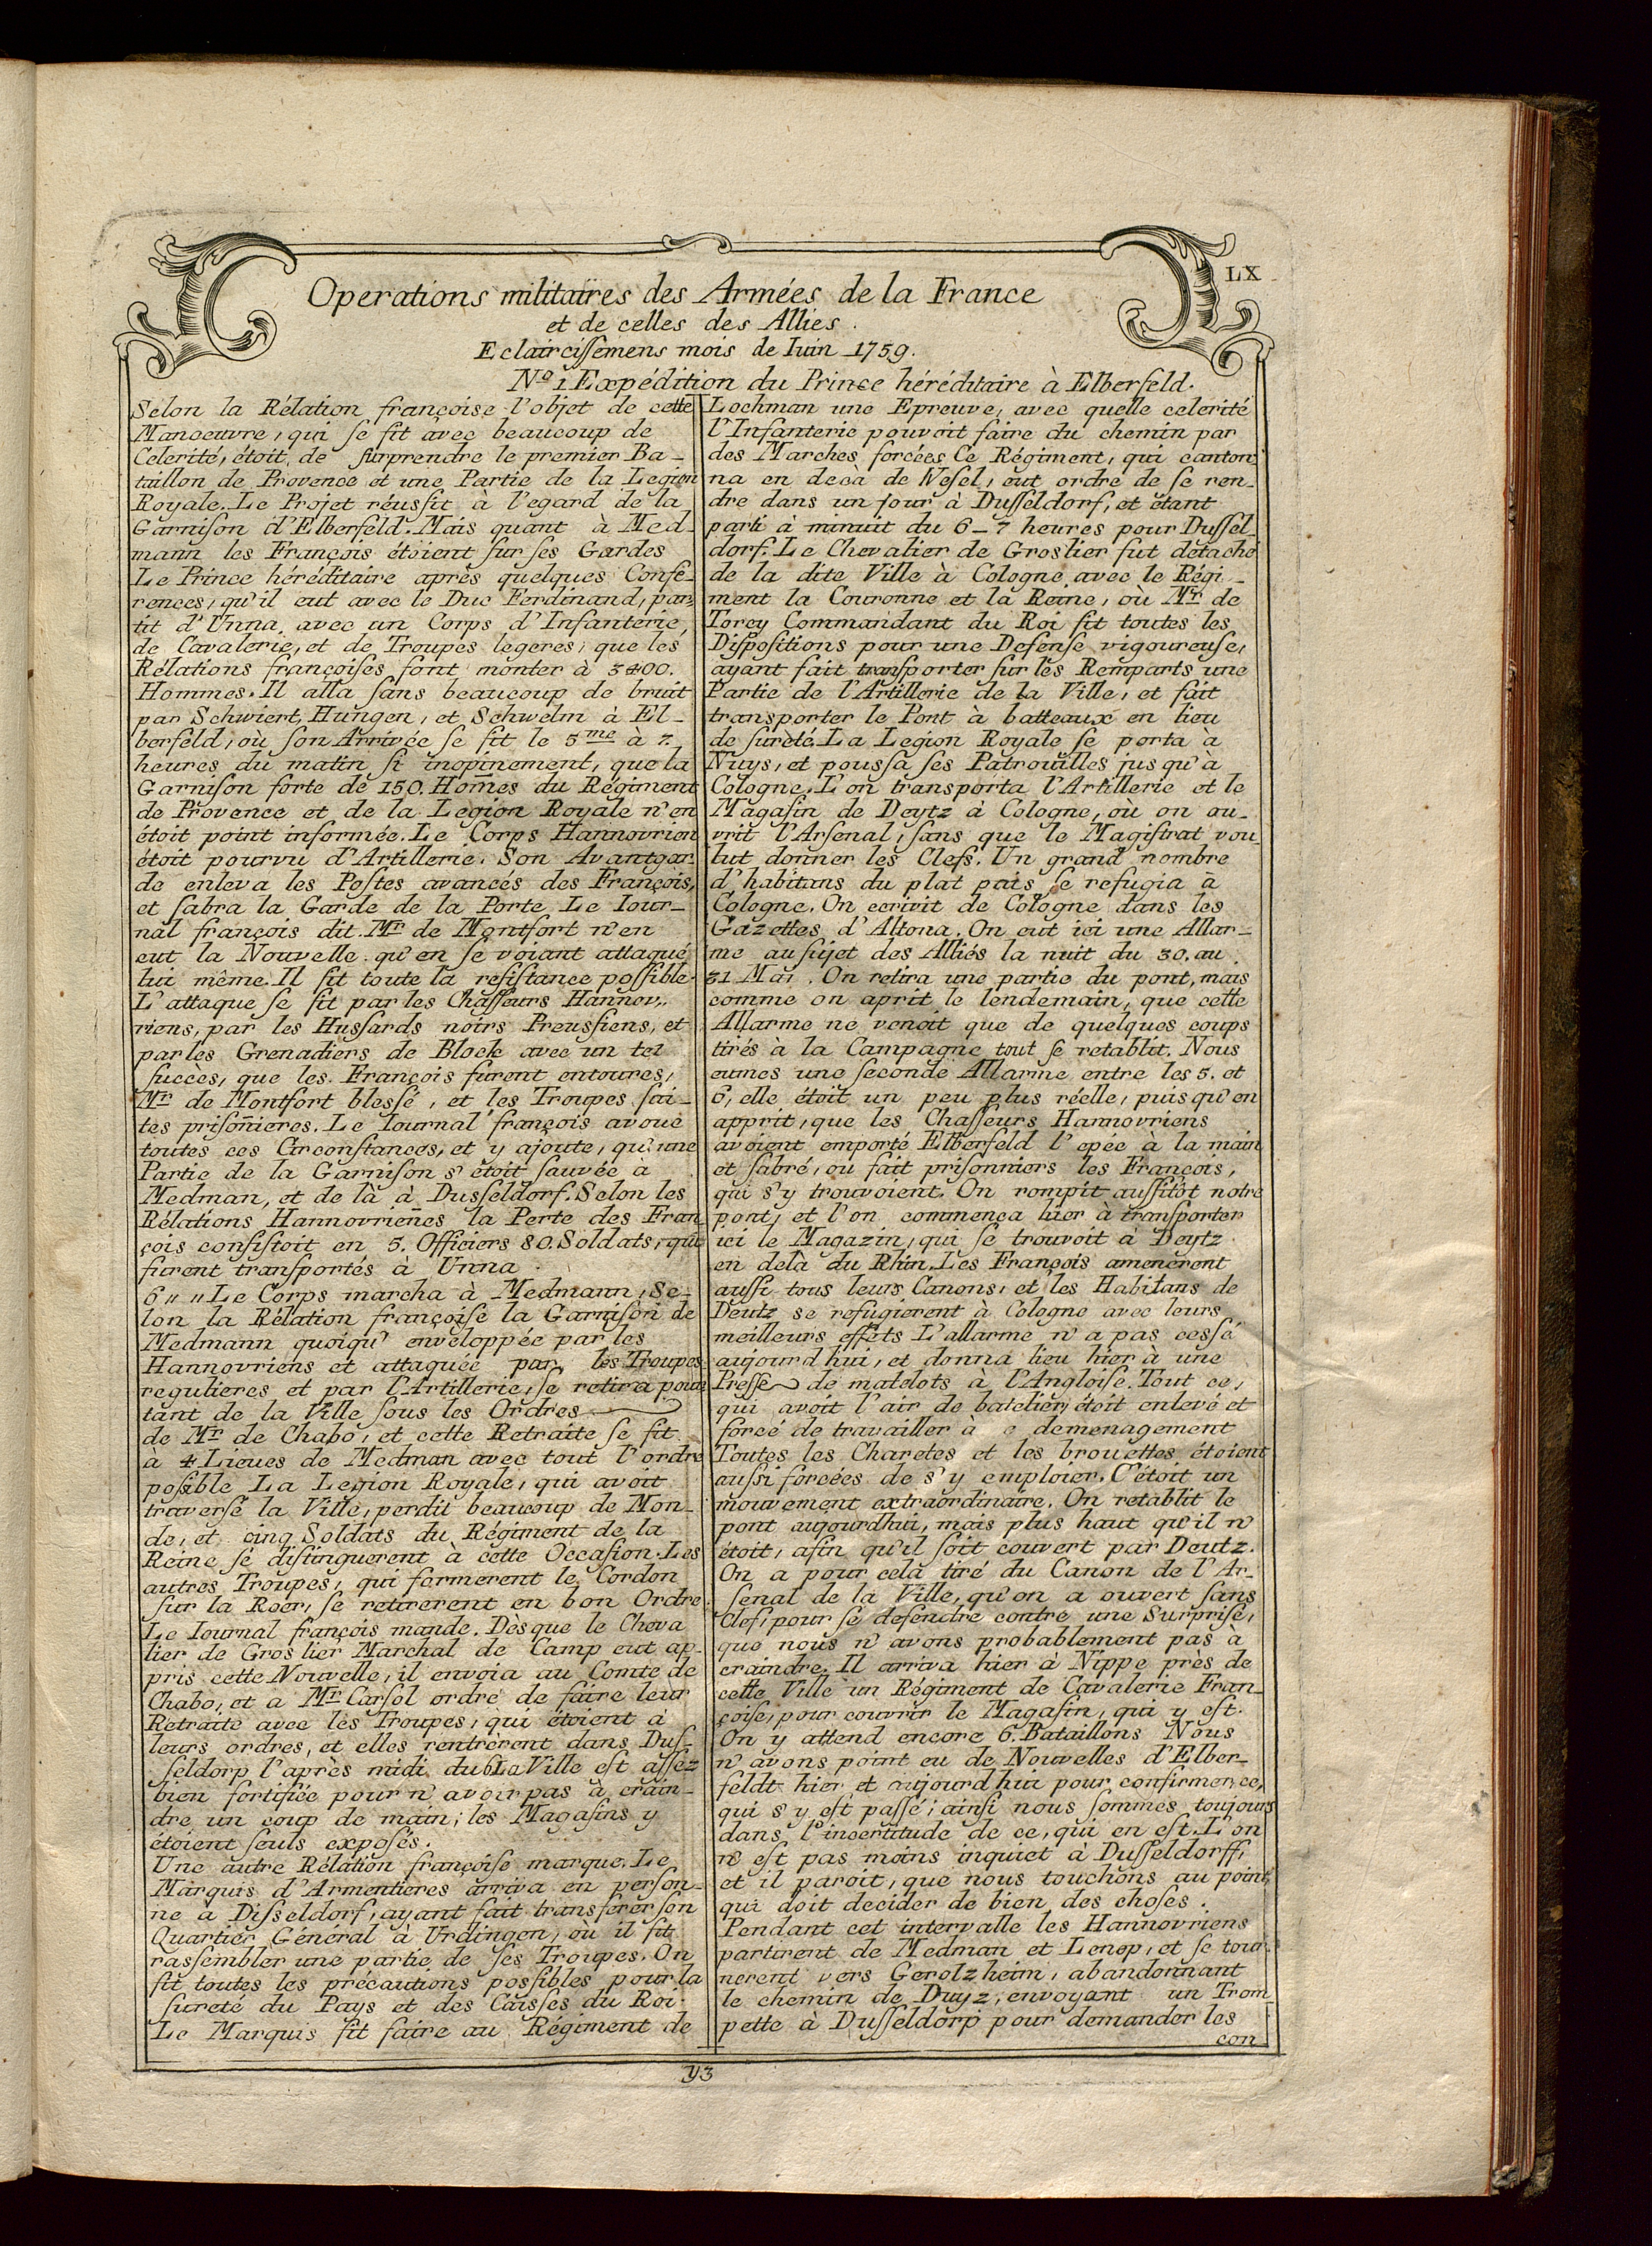 LX
Operations militaires des Armées de la France
et de celles des Allies.
Eclaircissemens mois de Iuin 1759.
No. 1. Expédition du Prince héréditaire à Elberfeld.
Selon la Rélation françoise l'objet de cette
Manoeuvre, qui se fit avec beaucoup de
Celerité, étoit, de surprendre le premier Ba-
taillon de Provence et une Partie de la Legion
Royale. Le Projet réussit à l'egard de la
Garnison d'Elberfeld. Mais quant à Med-
mann les François étoient sur ses Gardes
Le Prince héréditaire après quelques Confe-
rences, qu'il eut avec le Duc Ferdinand, par-
tit d'Unna avec un Corps d'Infanterie,
de Cavalerie, et de Troupes legeres, que les
Rélations françoises font monter à 3400.
Hommes. Il alla sans beaucoup de bruit
par Schwiert, Hungen, et Schwelm à El-
berfeld, où son Arrivée se fit le 5me à 7.
heures du matin si inopinement, que la
Garnison forte de 150. Hom̄es du Régiment
de Provence et de la Legion Royale n'en
étoit point informée. Le Corps Hannovrien
étoit pourvu d'Artillerie. Son Avantgar-
de enleva les Postes avancés des François,
et sabra la Garde de la Porte. Le Iour-
nal françois dit. Mr. de Montfort n'en
eut la Nouvelle qu'en se voiant attaqué
lui même. Il fit toute la resistance possible.
L'attaque se fit par les Chasseurs Hannov-
riens, par les Hussards noirs Preussiens, et
par les Grenadiers de Block avec un tel
succès, que les François furent entoures,
Mr. de Montfort blessé, et les Troupes fai-
tes prison̄ieres. Le Iournal françois avoue
toutes ces Circonstances, et y ajoute, qu'une
Partie de la Garnison s'étoit sauvée à
Medman, et de là à Dusseldorf. Selon les
Rélations Hannovrien̄es la Perte des Fran
çois consistoit en 5. Officiers 80. Soldats, qui
furent transportés à Unna.
6 " " Le Corps marcha à Medmann, Se-
lon la Rélation françoise la Garnison de
Medmann quoiqu' enveloppée par les
Hannovriens et attaquée par les Troupes
regulieres et par l'Artillerie, se retira pour
tant de la Ville sous les Ordres
de Mr. de Chabo, et cette Retraite se fit
a 4 Lieues de Medman avec tout l'ordre
posible La Legion Royale, qui avoit
traversé la Ville, perdit beaucoup de Mon-
de, et cinq Soldats du Régiment de la
Reine se distinguerent à cette Occasion. Les
autres Troupes, qui formerent le Cordon
sur la Roer, se retirerent en bon Ordre.
Le Iournal françois mande. Dès que le Cheva
lier de Groslier Marchal de Camp eut ap-
pris cette Nouvelle, il envoia au Comte de
Chabo, et a Mr. Carsol ordre de faire leur
Retraite avec les Troupes, qui étoient à
leurs ordres, et elles rentrèrent dans Dus-
seldorp l'après midi du 6 La Ville est assez
bien fortifiée pour n'avoir pas à crain-
dre un coup de main; les Magasins y
étoient seuls exposés.
Une autre Rélation françoise marque. Le
Marquis d'Armentieres arriva en person-
ne à Disseldorf, ayant fait transferer son
Quartier Général à Urdingen, où il fit
rassembler une partie de ses Troupes. On
fit toutes les précautions possibles pour la
sureté du Pays et des Caisses du Roi.
Le Marquis fit faire au Régiment de
Lochman une Epreuve, avec quelle celerité
l'Infanterie pouvoit faire du chemin par
des Marches forcées Ce Régiment, qui canton-
na en decà de Wesel, eut ordre de se ren-
dre dans un jour à Dusseldorf, et étant
parti à minuit du 6-7 heures pour Dussel-
dorf. Le Chevalier de Groslier fut détaché
de la dite Ville à Cologne avec le Régi-
ment la Couronne et la Reine, où Mr. de
Torcy Commandant du Roi fit toutes les
Dispositions pour une Defense vigoureuse,
ayant fait transporter sur les Remparts une
Partie de l'Artillerie de la Ville, et fait
transporter le Pont à batteaux en lieu
de sureté. La Legion Royale se porta à
Nuys, et poussa ses Patrouilles jusqu'à
Cologne. L'on transporta l'Artillerie et le
Magasin de Deytz à Cologne, où on ou-
vrit l'Arsenal, sans que le Magistrat vou-
lut donner les Clefs. Un grand nombre
d'habitans du plat pais se refugia à
Cologne. On ecrivit de Cologne dans les
Gazettes d'Altona. On eut ici une Allar-
me au sujet des Alliés la nuit du 30. au
31 Mai. On retira une partie du pont, mais
comme on aprit le lendemain, que cette
Allarme ne venoit que de quelques coups
tirés à la Campagne tout se retablit. Nous
eumes une seconde Allarme entre les 5. et
6, elle étoit un peu plus réelle, puis qu'en
apprit, que les Chasseurs Hannovriens
avoient emporté Elberfeld l'epée à la main
et sabré, ou fait prisonniers les François,
qui s'y trouvoient. On rompit aussitôt notre
pont, et l'on commença hier à transporter
ici le Magazin, qui se trouvoit à Deytz
en delà du Rhin. Les François amenèrent
aussi tous leurs Canons, et les Habitans de
Deutz se refugierent à Cologne avec leurs
meilleurs effets L'allarme n'a pas cessé
aujourd hui, et donna lieu hier à une
Presse de matelots à l'Angloise. Tout ce,
qui avoit l'air de batelier, étoit enlevé et
forcé de travailler à demenagement
Toutes les Charetes et les brouettes étoient
aussi forcées de s'y emploier. C'étoit un
mouvement extraordinaire. On retablit le
pont aujourdhui, mais plus haut qu'il n'
étoit, afin qu'il soit couvert par Deutz.
On a pour celà tiré du Canon de l'Ar-
senal de la Ville, qu'on a ouvert sans
Clef, pour se defendre contre une Surprise,
que nous n'avons probablement pas à
craindre. Il arriva hier à Nippe près de
cette Ville un Régiment de Cavalerie Fran-
çoise, pour couvrir le Magasin, qui y est.
On y attend encore 6. Bataillons Nous
n'avons point eu de Nouvelles d'Elber-
feldt hier et aujourd hui pour confirmer, ce,
qui s'y est passé; ainsi nous sommes toujours
dans l'incertitude de ce, qui en est. L'on
n'est pas moins inquiet à Dusseldorff,
et il paroit, que nous touchons au point,
qui doit decider de bien des choses.
Pendant cet intervalle les Hannovriens
partirent de Medman et Lenep, et se tour-
nerent vers Gerolzheim, abandonnant
le chemin de Duyz, envoyant un Trom
pette à Dusseldorp pour demander les
con-
y3